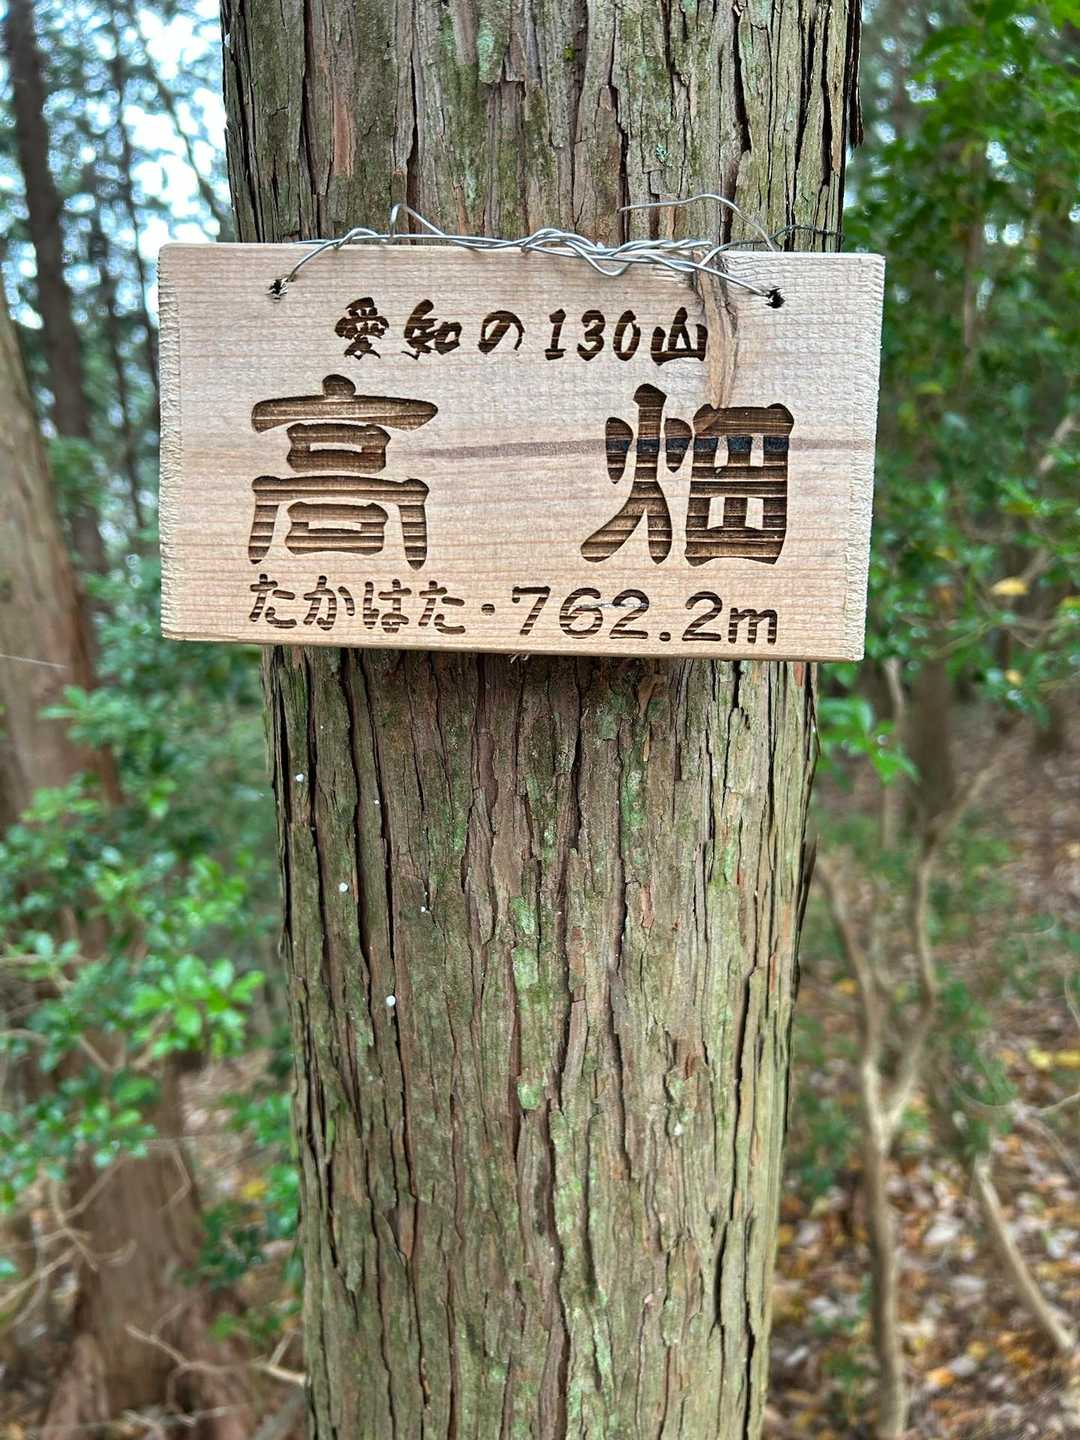 愛知の130山
高畑
たかはた・762.2m